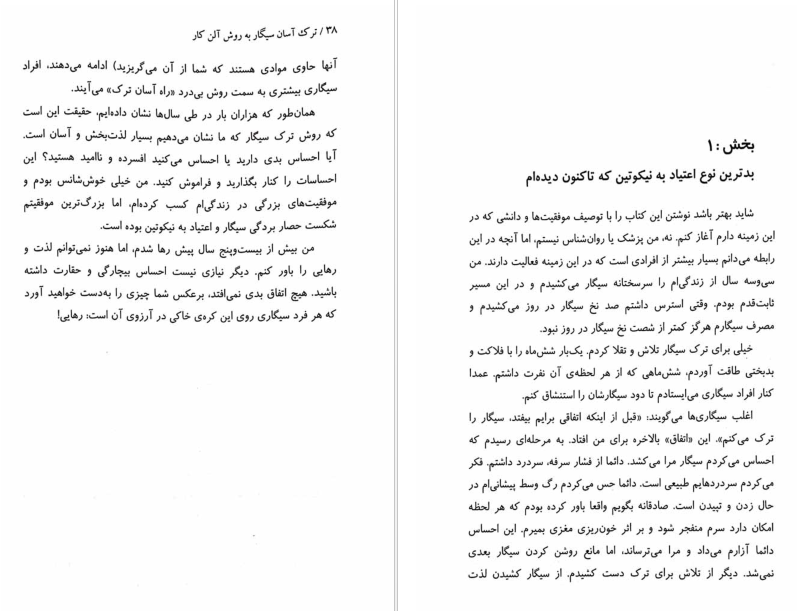 ۳۸ / ترک آسان سیگار به روش آلن کار
آنها حاوی موادی هستند که شما از آن می‌گریزید) ادامه می‌دهند، افراد
سیگاری بیشتری به سمت روش بی‌درد «راه آسان ترک» می‌آیند.
همان‌طور که هزاران بار در طی سال‌ها نشان داده‌ایم، حقیقت این است
که روش ترک سیگار که ما نشان می‌دهیم بسیار لذت‌بخش و آسان است.
آیا احساس بدی دارید یا احساس می‌کنید افسرده و ناامید هستید؟ این
احساسات را کنار بگذارید و فراموش کنید. من خیلی خوش‌شانس بودم و
موفقیت‌های بزرگی در زندگی‌ام کسب کرده‌ام، اما بزرگ‌ترین موفقیتم
شکست حصار بردگی سیگار و اعتیاد به نیکوتین بوده است.
من بیش از بیست‌وپنج سال پیش رها شدم، اما هنوز نمی‌توانم لذت و
رهایی را باور کنم. دیگر نیازی نیست احساس بیچارگی و حقارت داشته
باشید. هیچ اتفاق بدی نمی‌افتد، برعکس شما چیزی را به‌دست خواهید آورد
که هر فرد سیگاری روی این کره‌ی خاکی در آرزوی آن است: رهایی!
بخش : ۱
بدترین نوع اعتیاد به نیکوتین که تاکنون دیده‌ام
شاید بهتر باشد نوشتن این کتاب را با توصیف موفقیت‌ها و دانشی که در
این زمینه دارم آغاز کنم. نه، من پزشک یا روان‌شناس نیستم، اما آنچه در این
رابطه می‌دانم بسیار بیشتر از افرادی است که در این زمینه فعالیت دارند. من
سی‌وسه سال از زندگی‌ام را سرسختانه سیگار می‌کشیدم و در این مسیر
ثابت‌قدم بودم. وقتی استرس داشتم صد نخ سیگار در روز می‌کشیدم و
مصرف سیگارم هرگز کمتر از شصت نخ سیگار در روز نبود.
خیلی برای ترک سیگار تلاش و تقلا کردم. یک‌بار شش‌ماه را با فلاکت و
بدبختی طاقت آوردم، شش‌ماهی که از هر لحظه‌ی آن نفرت داشتم. عمدا
کنار افراد سیگاری می‌ایستادم تا دود سیگارشان را استنشاق کنم.
اغلب سیگاری‌ها می‌گویند: «قبل از اینکه اتفاقی برایم بیفتد، سیگار را
ترک می‌کنم». این «اتفاق» بالاخره برای من افتاد. به مرحله‌ای رسیدم که
احساس می‌کردم سیگار مرا می‌کشد. دائما از فشار سرفه، سردرد داشتم. فکر
می‌کردم سردردهایم طبیعی است. دائما حس می‌کردم رگ وسط پیشانی‌ام در
حال زدن و تپیدن است. صادقانه بگویم واقعا باور کرده بودم که هر لحظه
امکان دارد سرم منفجر شود و بر اثر خون‌ریزی مغزی بمیرم. این احساس
دائما آزارم می‌داد و مرا می‌ترساند، اما مانع روشن کردن سیگار بعدی
نمی‌شد. دیگر از تلاش برای ترک دست کشیدم. از سیگار کشیدن لذت